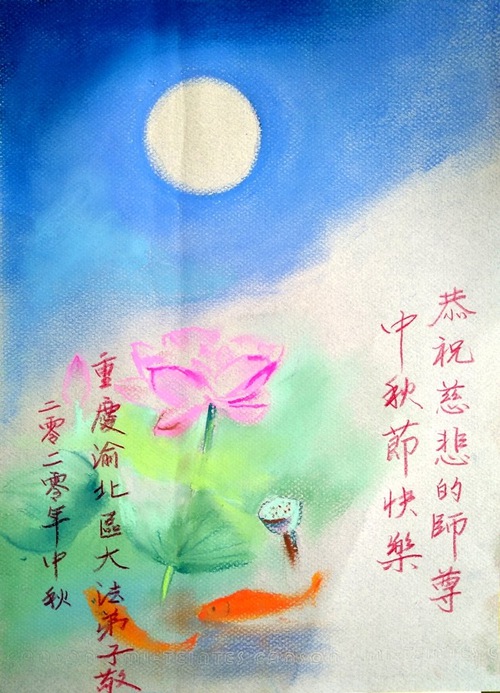 恭祝慈悲的師尊
中秋節快樂
重慶渝北區大法弟子敬
二零二零年中秋